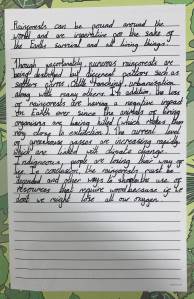 Rainforests can be found around the
world and are imperative for the sake of
the Earths survival and all living things.
Though unfortunately numerous rainforests are
being disturbed by different factors such as
settlers, cattle ranching, urbanisation
along with many others. In addition the loss
of rainforests are having a negative impact
on Earth ever since the animals or living
organisms are being killed (which makes them
very close to extinction). The current level
of greenhouse gasses are increasing rapidly
which are linked with climate change.
Indigenous people are losing their way of
life. In conclusion, the rainforests must be
and other ways to the use of
resources that require wood because if we
don't we might lose all our oxygen.